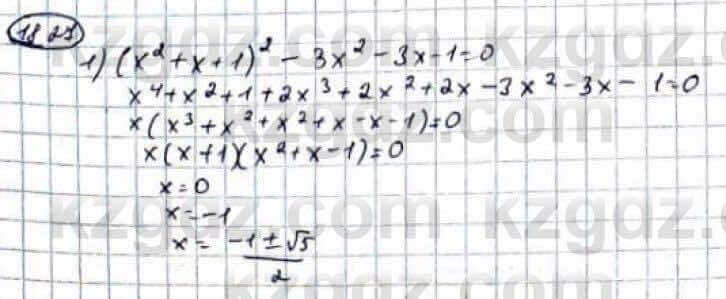 18.27
1) (x² + x + 1)² - 3x² - 3x - 1 = 0
x⁴ + x² + 1 + 2x³ + 2x² + 2x - 3x² - 3x - 1 = 0
x(x³ + x² + x² + x - x - 1) = 0
x(x+1)(x² + x - 1) = 0
x = 0
x = -1
x = (-1 ± √5)/2
kzgdz.com